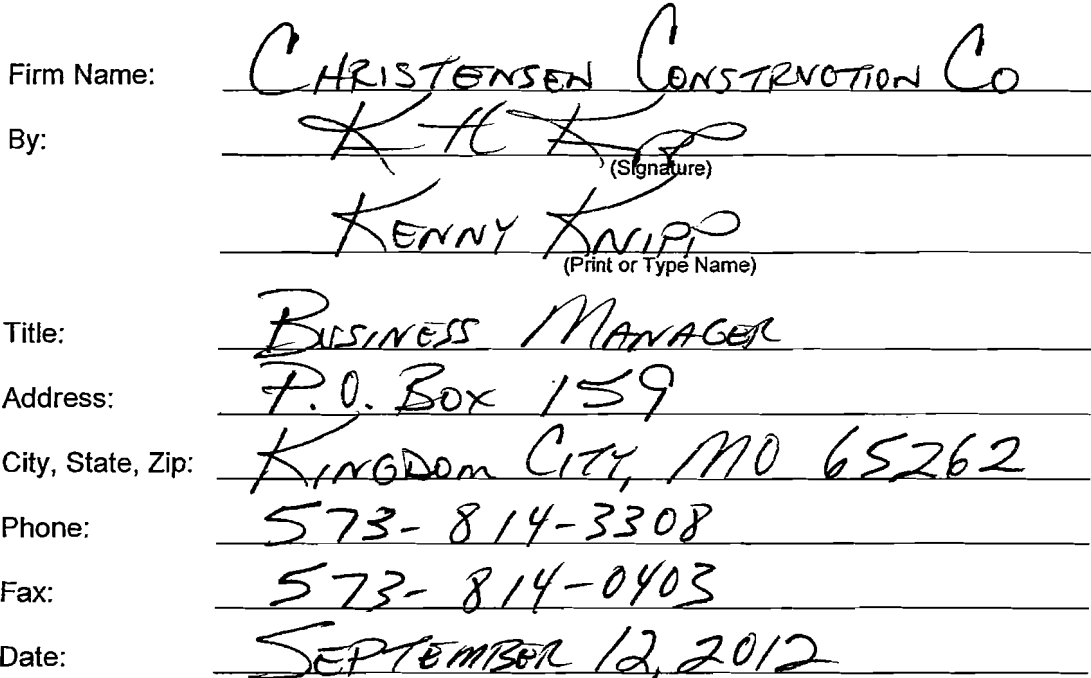 Firm Name: CHRISTENSEN CONSTRUCTION CO
By: K H K
(Signature)
KENNY KNIPP
(Print or Type Name)
Title: BUSINESS MANAGER
Address: P.O. BOX 159
City, State, Zip: KINGDOM CITY, MO 65262
Phone: 573-814-3308
Fax: 573-814-0403
Date: SEPTEMBER 12, 2012